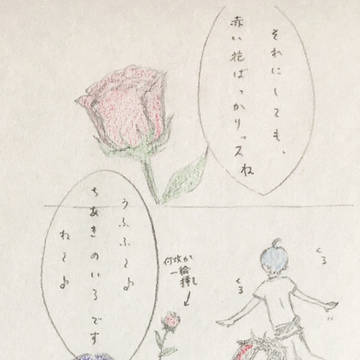 それにしても、
赤い花ばっかりっスね
うふふ〜♪
ちあきのいろです
ね〜♪
何故か
一輪
挿し
くる
くる